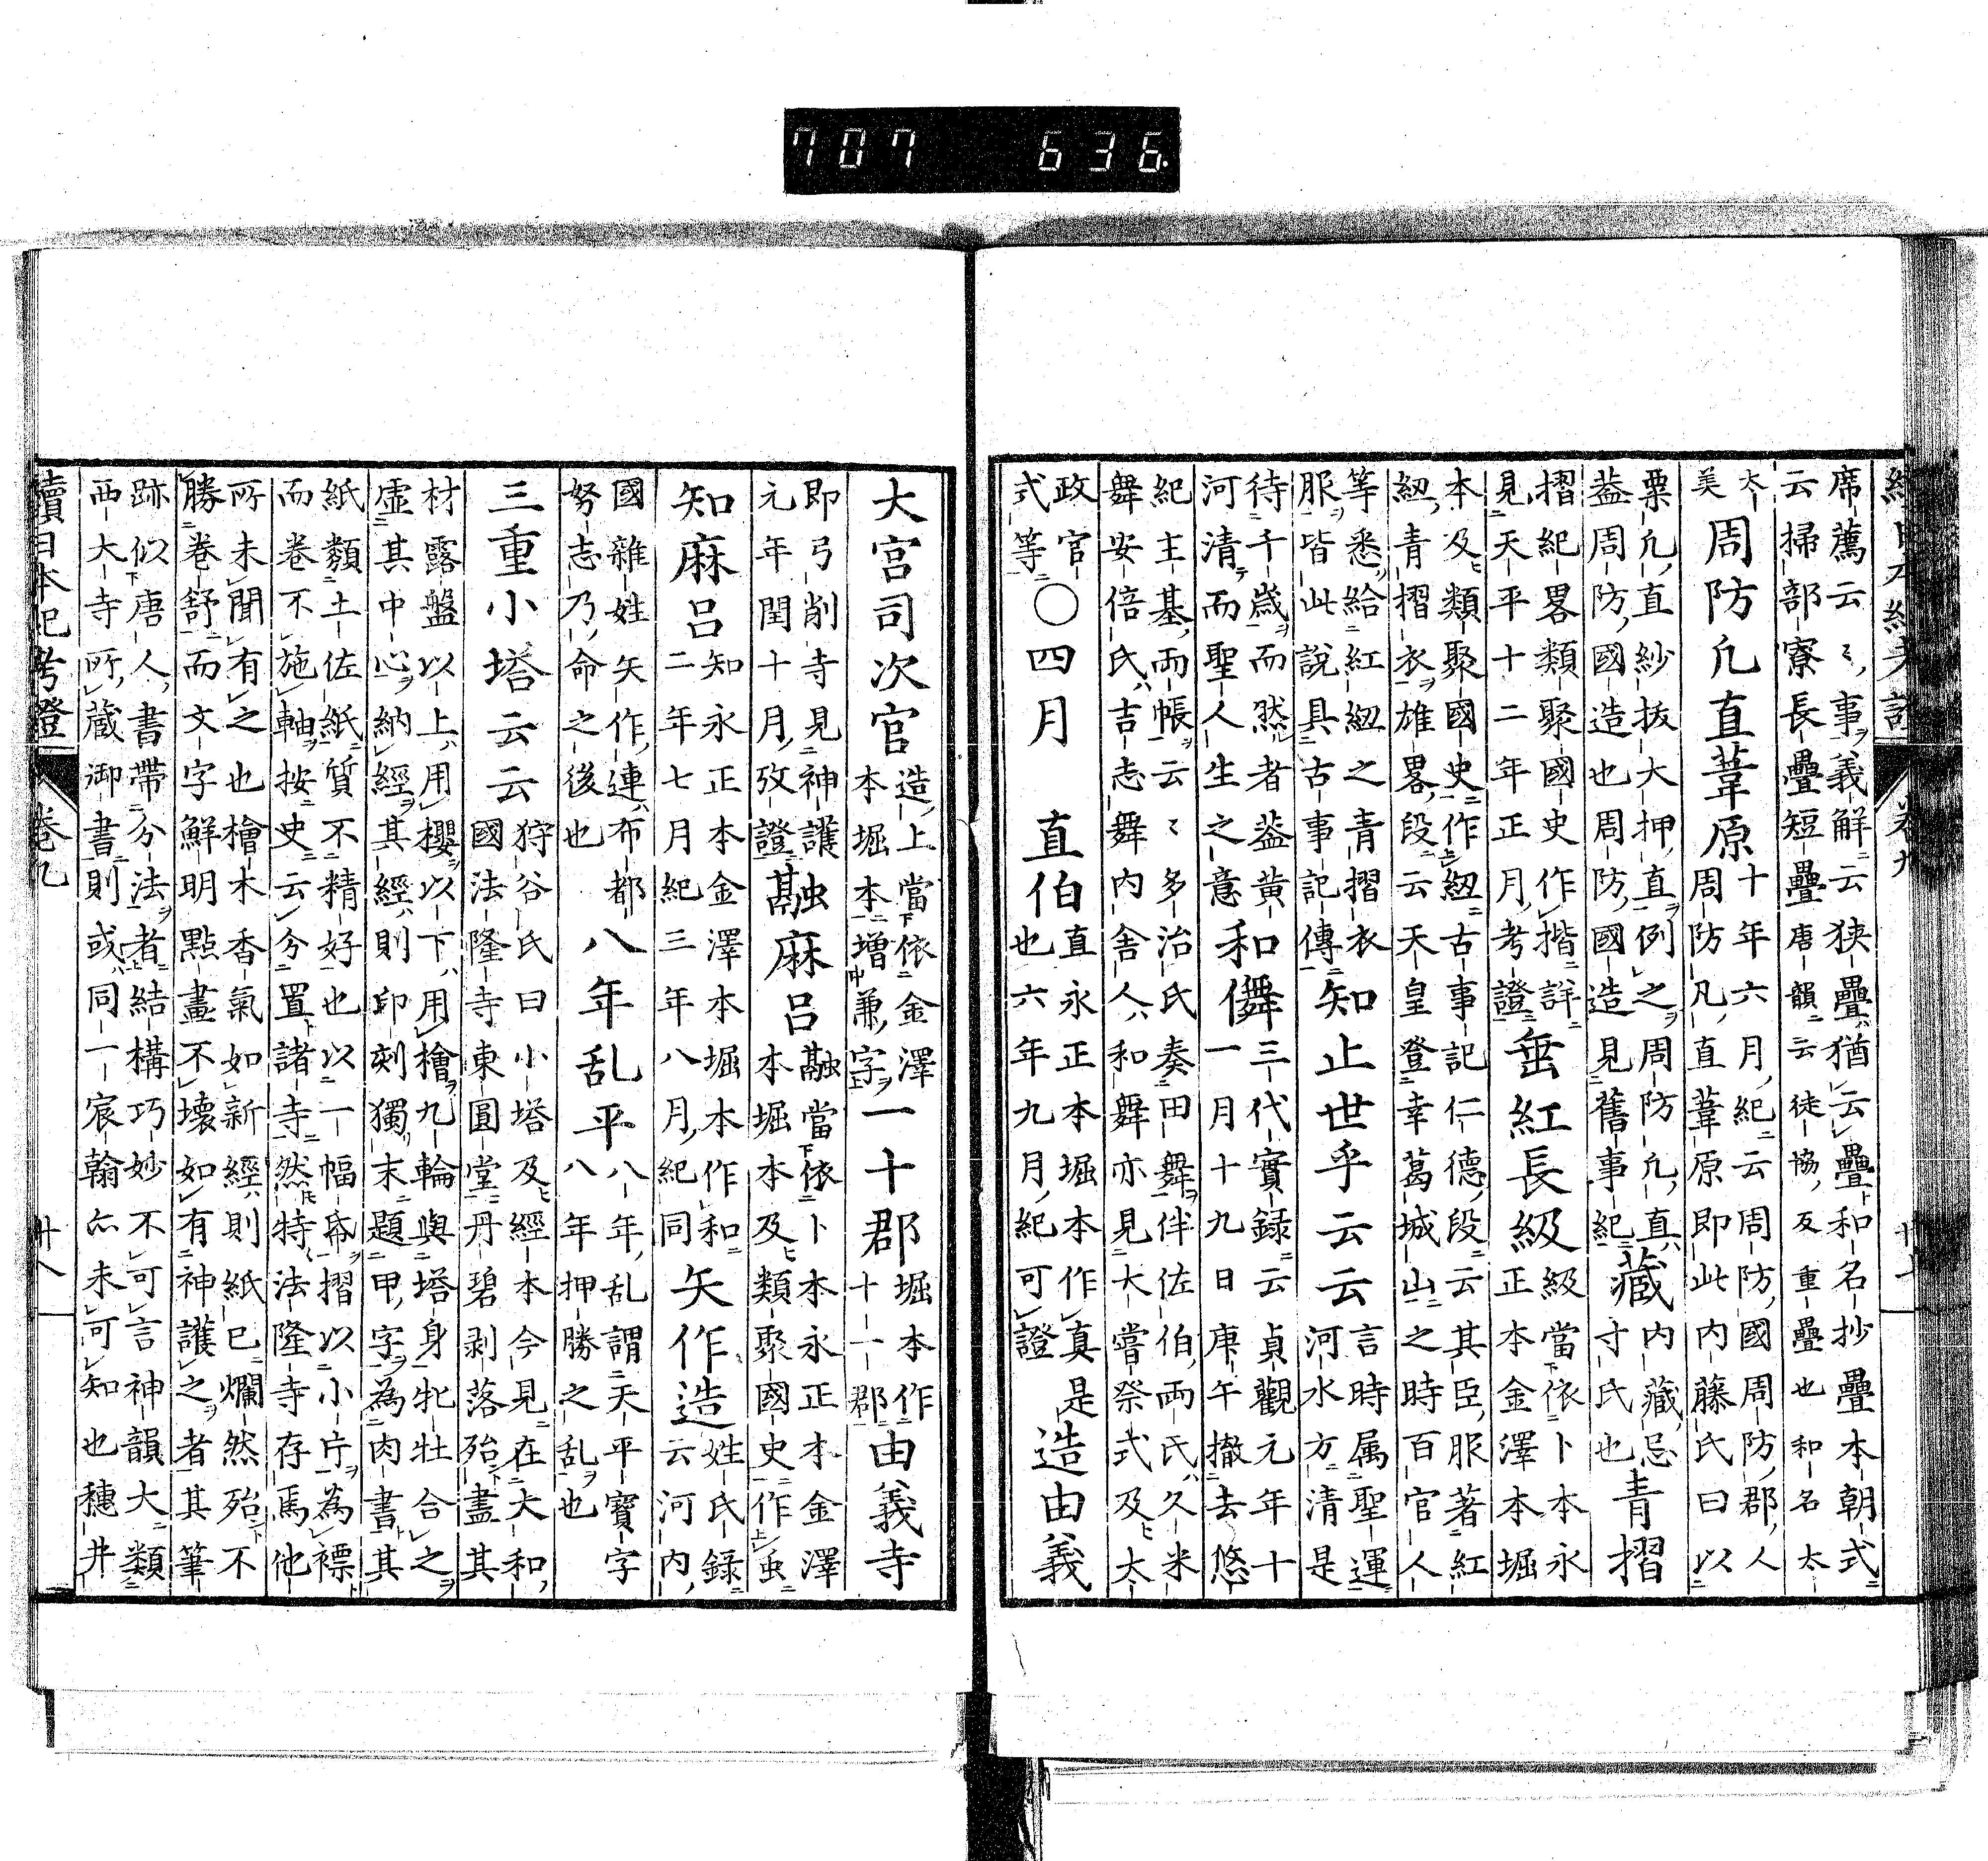 席薦云〻事義解云狭疊猶云疊和名抄疊本朝式
云掃部寮長疊短疊唐韻云徒協反重疊也和名太
太
美
周防凡直葦原
十年六月紀云周防國周防郡人
周防凡直葦原即此内藤氏曰以
粟凡直紗抜大押直例之周防凡直
葢周防國造也周防國造見舊事紀
藏
内藏忌
寸氏也
青摺
摺紀畧類聚國史作揩詳
見天平十二年正月考證
垂紅長級
級當依卜本永
正本金澤本堀
本及類聚國史作紐古事記仁德段云其臣服著紅
紐青摺衣雄畧段云天皇登幸葛城山之時百官人
等悉給紅紐之青摺衣
服皆此説具古事記傳
知止世乎云云
言時属聖運
河水方清是
待千歳而然者葢黄
河清而聖人生之意
和儛
三代實録云貞觀元年十
一月十九日庚午撤去悠
紀主基两帳云〻多治氏奏田舞伴佐伯两氏久米
舞安倍氏吉志舞内舎人和舞亦見大嘗祭式及太
政官
式等
○四月　直伯
直永正本堀本作真是
也六年九月紀可證
造由義
大宮司次官
造上當依金澤
本堀本增兼字
一十郡
堀本作
十一郡
由義寺
即弓削寺見神護
元年閏十月攷證
融麻呂
融當依卜本永正本金澤
本堀本及類聚國史作虫
知麻呂
知永正本金澤本堀本作和
二年七月紀三年八月紀同
矢作造
姓氏録
云河内
國雜姓矢作連布都
努志乃命之後也
八年乱平
八年乱謂天平寳字
八年押勝之乱也
三重小塔云云
狩谷氏曰小塔及經本今見在大和
國法隆寺東圓堂丹碧剥落殆盡其
材露盤以上用櫻以下用檜九輪與塔身牝牡合之
虚其中心納經其經則印刻獨末題甲字為肉書其
紙類土佐紙質不精好也以一幅帋摺以小片為褾
而卷不施軸按史云分置諸寺然特法隆寺存焉他
所未聞有之也檜木香氣如新經則紙已爛然殆不
勝卷舒而文字鮮明點畫不壊如有神護之者其筆
跡似唐人書帶分法者結構巧妙不可言神韻大類
西大寺所藏御書則或同一宸翰亦未可知也穗井
續日本紀考證 卷九 廿八